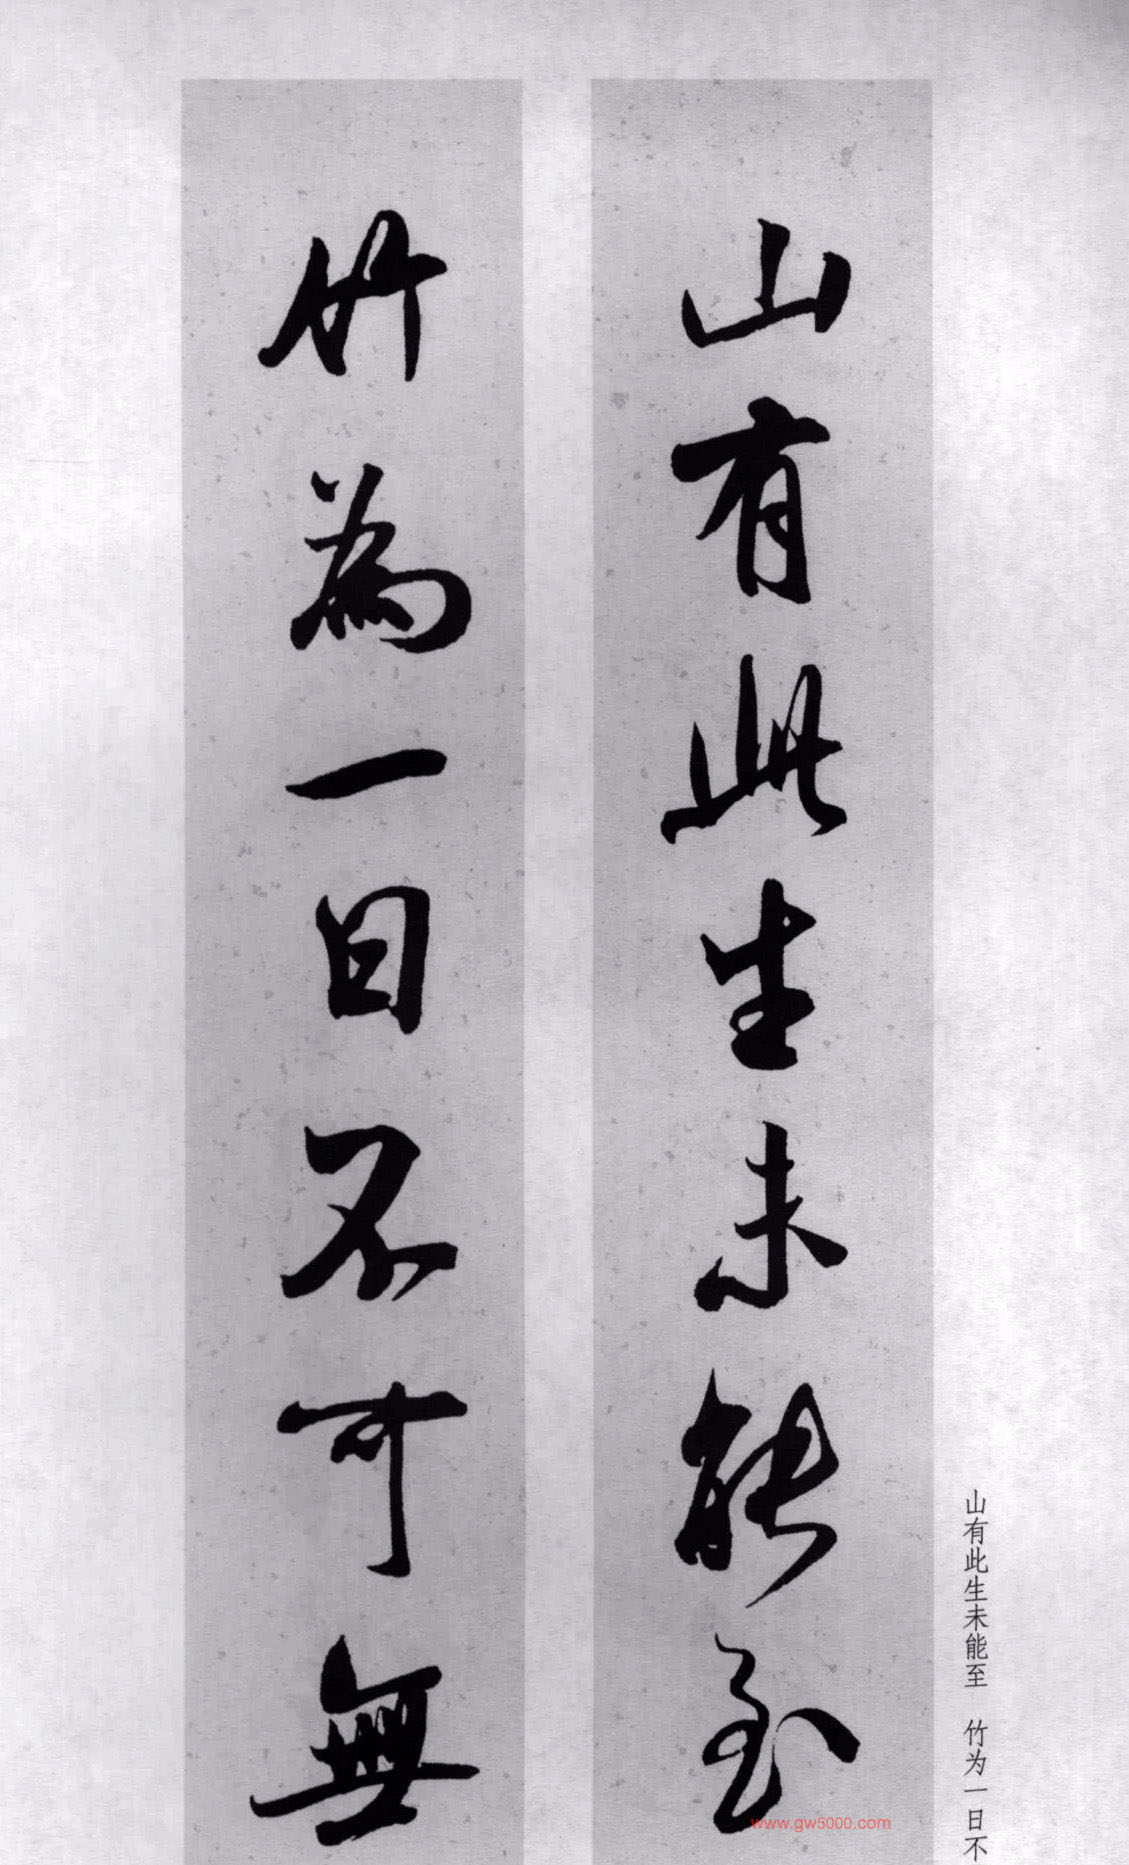 山有此生未能至
竹為一日不可無
山有此生未能至 竹为一日不
www.gw5000.com